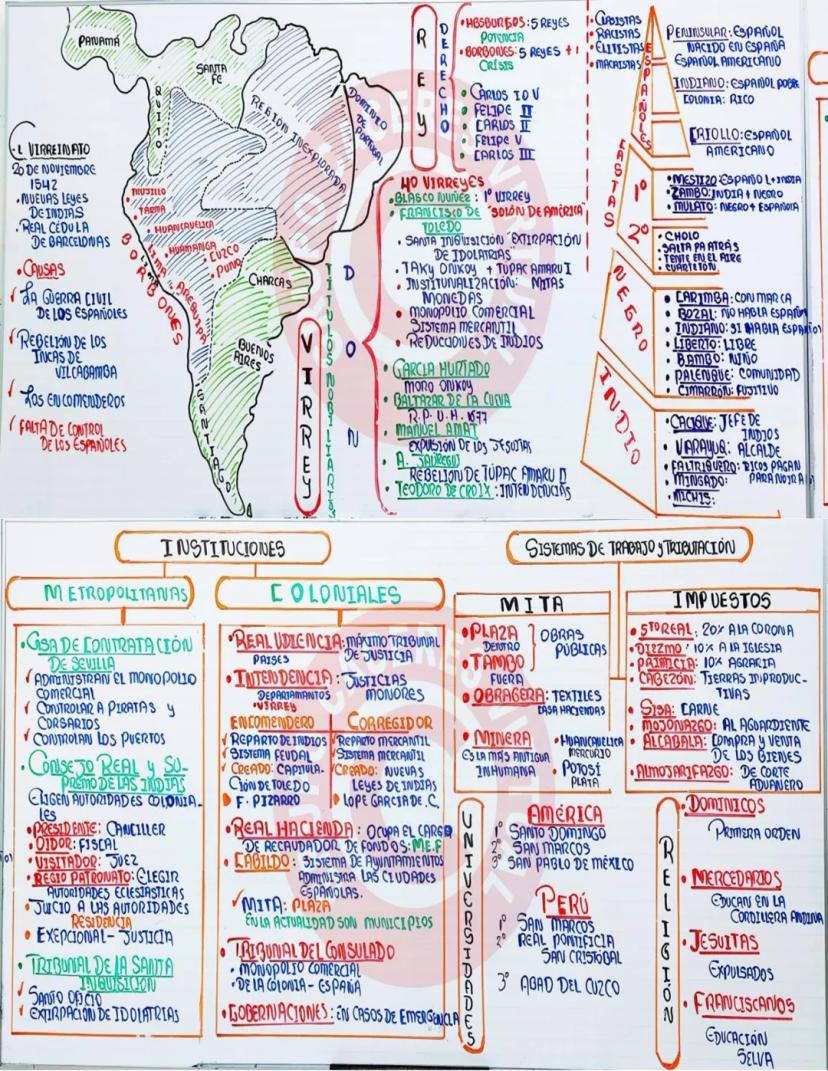 EL VIRREINATO
20 DE NOVIEMBRE
1542
• NUEVAS LEYES
DE INDIAS
• REAL CÉDULA
DE BARCELONAS
• CAUSAS
✓ LA GUERRA CIVIL
DE LOS ESPAÑOLES
✓ REBELIÓN DE LOS
INCAS DE
VILCABAMBA
✓ LOS ENCOMENDEROS
✓ FALTA DE CONTROL
DE LOS ESPAÑOLES
PANAMÁ
SANTA
FE
QUITO
REGIÓN INEXPLORADA
DOMINIO
DE PORTUGAL
TRUJILLO
TARMA
HUANCAVELICA
HUAMANGA
CUZCO
PUNO
LIMA
AREQUIPA
BORBONES
CHARCAS
BUENOS
AIRES
SANTIAGO
REY
DERECHO
• HABSBURGOS: 5 REYES
POTENCIA
• BORBONES: 5 REYES + 1
CRISIS
• CARLOS I O V
• FELIPE II
• CARLOS II
• FELIPE V
• CARLOS III
VIRREY
TÍTULOS NOBILIARIOS
DON
40 VIRREYES
• BLASCO NUÑEZ: 1º VIRREY
• FRANCISCO DE "SOLÓN DE AMÉRICA"
TOLEDO
• SANTA INQUISICIÓN "EXTIRPACIÓN
DE IDOLATRIAS"
• TAKY ONKOY + TUPAC AMARU I
• INSTITUNALIZACIÓN: MITAS
MONEDAS
• MONOPOLIO COMERCIAL
SISTEMA MERCANTIL
• REDUCCIONES DE INDIOS
• GARCIA HURTADO
MORO ONKOY
• BALTAZAR DE LA CUEVA
R.P.U.H. 1677
• MANUEL AMAT
EXPULSIÓN DE LOS JESUITAS
• A. JAÚREGUI
REBELIÓN DE TÚPAC AMARU II
• TEODORO DE CROIX: INTENDENCIAS
• CLASISTAS
• RACISTAS
• ELITISTAS
• MACHISTAS
ESPAÑOLES
PENINSULAR: ESPAÑOL
NACIDO EN ESPAÑA
ESPAÑOL AMERICANO
INDIANO: ESPAÑOL POBRE
COLONIA: RICO
CRIOLLO: ESPAÑOL
AMERICANO
CASTAS
1º
• MESTIZO: ESPAÑOL + INDIA
• ZAMBO: INDIA + NEGRO
• MULATO: NEGRO + ESPAÑOLA
2º
• CHOLO
• SALTA PA ATRÁS
• TENTE EN EL AIRE
• CUARTETÓN
NEGRO
• CARIMBA: CON MARCA
• BOZAL: NO HABLA ESPAÑOL
• INDIANO: SI HABLA ESPAÑOL
• LIBERTO: LIBRE
• BAMBO: NIÑO
• PALENQUE: COMUNIDAD
• CIMARRÓN: FUJITIVO
INDIO
• CACIQUE: JEFE DE
INDIOS
• VARAYUQ: ALCALDE
• FALTRIQUERO: RICOS PAGAN
• MINGADO: PARA NO IR A
• MICHIS:
INSTITUCIONES
METROPOLITANAS
• CASA DE CONTRATACIÓN
DE SEVILLA
✓ ADMINISTRAN EL MONOPOLIO
COMERCIAL
✓ CONTROLAR A PIRATAS Y
CORSARIOS
✓ CONTROLAN LOS PUERTOS
• CONSEJO REAL Y SU-
PREMO DE LAS INDIAS
ELIGEN AUTORIDADES COLONIA-
LES
• PRESIDENTE: CANCILLER
• OIDOR: FISCAL
• VISITADOR: JUEZ
• REGIO PATRONATO: ELEGIR
AUTORIDADES ECLESIASTICAS
• JUICIO A LAS AUTORIDADES
RESIDENCIA
• EXEPCIONAL - JUSTICIA
• TRIBUNAL DE LA SANTA
INQUISICIÓN
✓ SANTO OFICIO
✓ EXTIRPACIÓN DE IDOLATRIAS
COLONIALES
• REAL UDIENCIA: MÁXIMO TRIBUNAL
PAISES DE JUSTICIA
• INTENDENCIA: JUSTICIAS
DEPARTAMANTOS MONORES
✓ VIRREY
ENCOMENDERO
✓ REPARTO DE INDIOS
✓ SISTEMA FEUDAL
✓ CREADO: CAPITULA-
CIÓN DE TOLEDO
• F. PIZARRO
CORREGIDOR
✓ REPARTO MERCANTIL
SISTEMA MERCANTIL
✓ CREADO: NUEVAS
LEYES DE INDIAS
• LOPE GARCIA DE C.
• REAL HACIENDA: OCUPA EL CARGO
DE RECAUDADOR DE FONDOS: M.E.F
• CABILDO: SISTEMA DE AYUNTAMIENTOS
ADMINISTRA LAS CIUDADES
ESPAÑOLAS.
✓ MITA: PLAZA
EN LA ACTUALIDAD SON MUNICIPIOS
• TRIBUNAL DEL CONSULADO
• MONOPOLIO COMERCIAL
• DE LA COLONIA - ESPAÑA
• GOBERNACIONES: EN CASOS DE EMERGENCIA
SISTEMAS DE TRABAJO Y TRIBUTACIÓN
MITA
• PLAZA
DENTRO
• TAMBO
FUERA
OBRAS
PÚBLICAS
• OBRAGERA: TEXTILES
CASA HACIENDAS
• MINERA
ES LA MÁS ANTIGUA
INHUMANA
• HUANCAVELICA
MERCURIO
• POTOSÍ
PLATA
IMPUESTOS
• 5TO REAL: 20% A LA CORONA
• DIEZMO: 10% A LA IGLESIA
• PRIMICIA: 10% AGRARIA
• CABEZÓN: TIERRAS IMPRODUC-
TIVAS
• SISA: CARNE
• MOJONAZGO: AL AGUARDIENTE
• ALCABALA: COMPRA Y VENTA
DE LOS BIENES
• ALMOJARIFAZGO: DE CORTE
ADUANERO
UNIVERSIDADES
AMÉRICA
1º SANTO DOMINGO
2º SAN MARCOS
3º SAN PABLO DE MÉXICO
PERÚ
1º SAN MARCOS
2º REAL PONTIFICIA
SAN CRISTÓBAL
3º ABAD DEL CUZCO
RELIGIÓN
• DOMINICOS
PRIMERA ORDEN
• MERCEDARIOS
EDUCAN EN LA
CORDILLERA ANDINA
• JESUITAS
EXPULSADOS
• FRANCISCANOS
EDUCACIÓN
SELVA